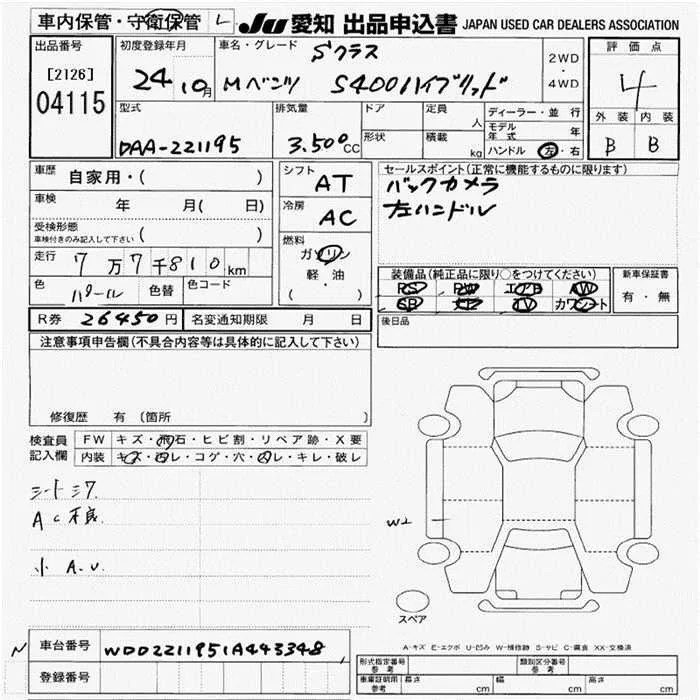 車内保管・守衛保管 L JU 愛知 出品申込書 JAPAN USED CAR DEALERS ASSOCIATION
出品番号 初度登録年月 車名・グレード Sクラス 2WD・4WD 評価点
[2126] 24 10月 Mベンツ S400ハイブリッド 4
04115 型式 排気量 ドア 定員 人 ディーラー・並行 外装 内装
DAA-221195 3.500CC 形状 積載 kg モデル年式 年 B B
ハンドル 左・右
車歴 自家用・( ) シフト AT セールスポイント(正常に機能するものに限ります)
車検 年 月( 日) 冷房 AC バックカメラ
受検形態 ( ) 左ハンドル
車検付きのみ記入して下さい
燃料 ガソリン
走行 7万7千810km 軽・油
色 パール 色替 色コード ( ・ )
装備品(純正品に限り○をつけてください) 新車保証書
PS PW エアB AW 有・無
SR ナビ TV カワシート
R券 26450円 名変通知期限 月 日 後日品
注意事項申告欄(不具合内容等は具体的に記入して下さい)
修復歴 有 (箇所
検査員 FW キズ・飛石・ヒビ割・リペア跡・X要
記入欄 内装 キズ・凹レ・コゲ・穴・凹レ・キレ・破レ
シートシワ
AC不良
小 A.U.
W2
スペア
A-キズ E-エクボ U-凹み W-補修跡 S-サビ C-腐食 XX-交換済
N 車台番号 WDD2211951A443348
登録番号
形式指定番号 参考 類別区分番号 参考
車庫証明用 参考 長さ cm 幅 cm 高さ cm